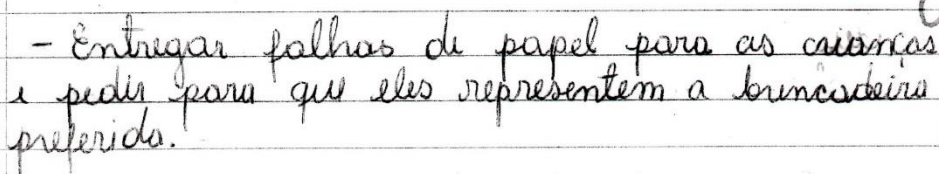 - Entregar folhas de papel para as crianças
e pedir para que eles representem a brincadeira
preferida.